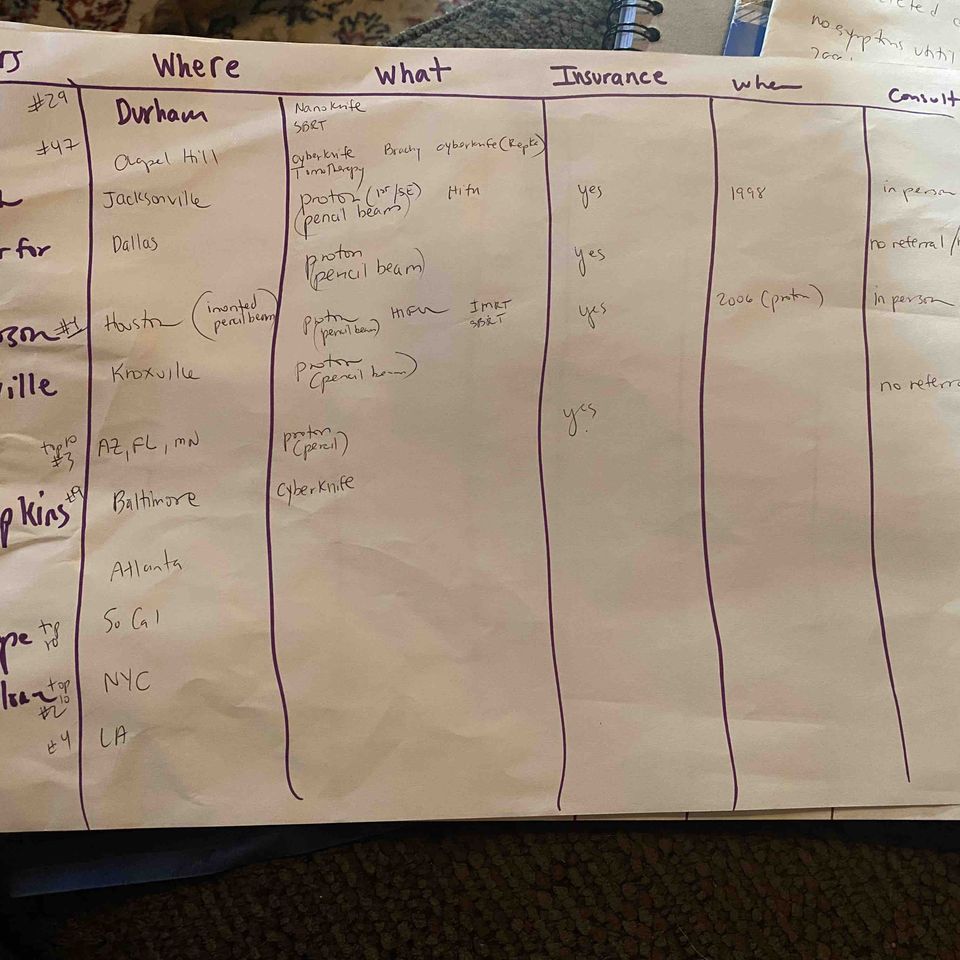 rs Where What Insurance when Consult
#29 Durham Nanoknife
SBRT
#47 Chapel Hill Cyberknife Brachy Cyberknife (Repke)
Tomotherapy
Jacksonville proton (1st/SE) Hifu yes 1998 in person
(pencil beam)
r for Dallas proton yes no referral /
(pencil beam)
rson #1 Houston (invented proton HIFU IMRT yes 2006 (proton) in person
pencil beam) (pencil beam) SBRT
ville Knoxville proton no referra
(pencil beam)
yes
top 10 AZ, FL, MN proton
#3 (pencil)
pkins #9 Baltimore Cyberknife
Atlanta
pe top So Cal
10
top NYC
10
#2
#4 LA
no symptoms until